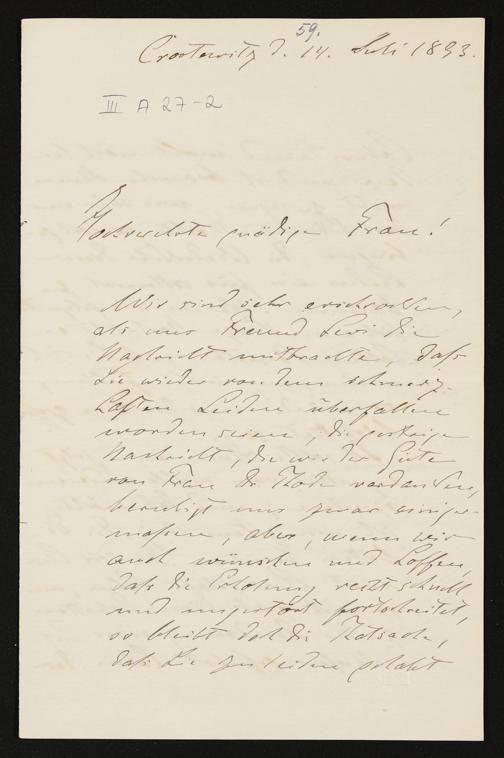 59.
Crostewitz d. 14. Juli 1893.
III A 27-2
Hochverehrte gnädige Frau!
Wir sind sehr erschrocken,
als uns Freund Levi die
Nachricht mitbrachte, daß
Sie wieder von dem schmerz-
haften Leiden überfallen
worden seien, die gestrige
Nachricht, die wir der Güte
von Frau Dr Thode verdanken,
beruhigt uns zwar einiger-
maßen, aber, wenn wir
auch wünschen und hoffen,
daß die Erholung recht schnell
und ungestört fortschreitet,
so bleibt doch die Thatsache,
daß Sie zu leiden gehabt